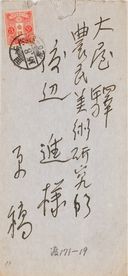 大屋驛
農民美術研究所
渡辺進様
原稿
渡171-19